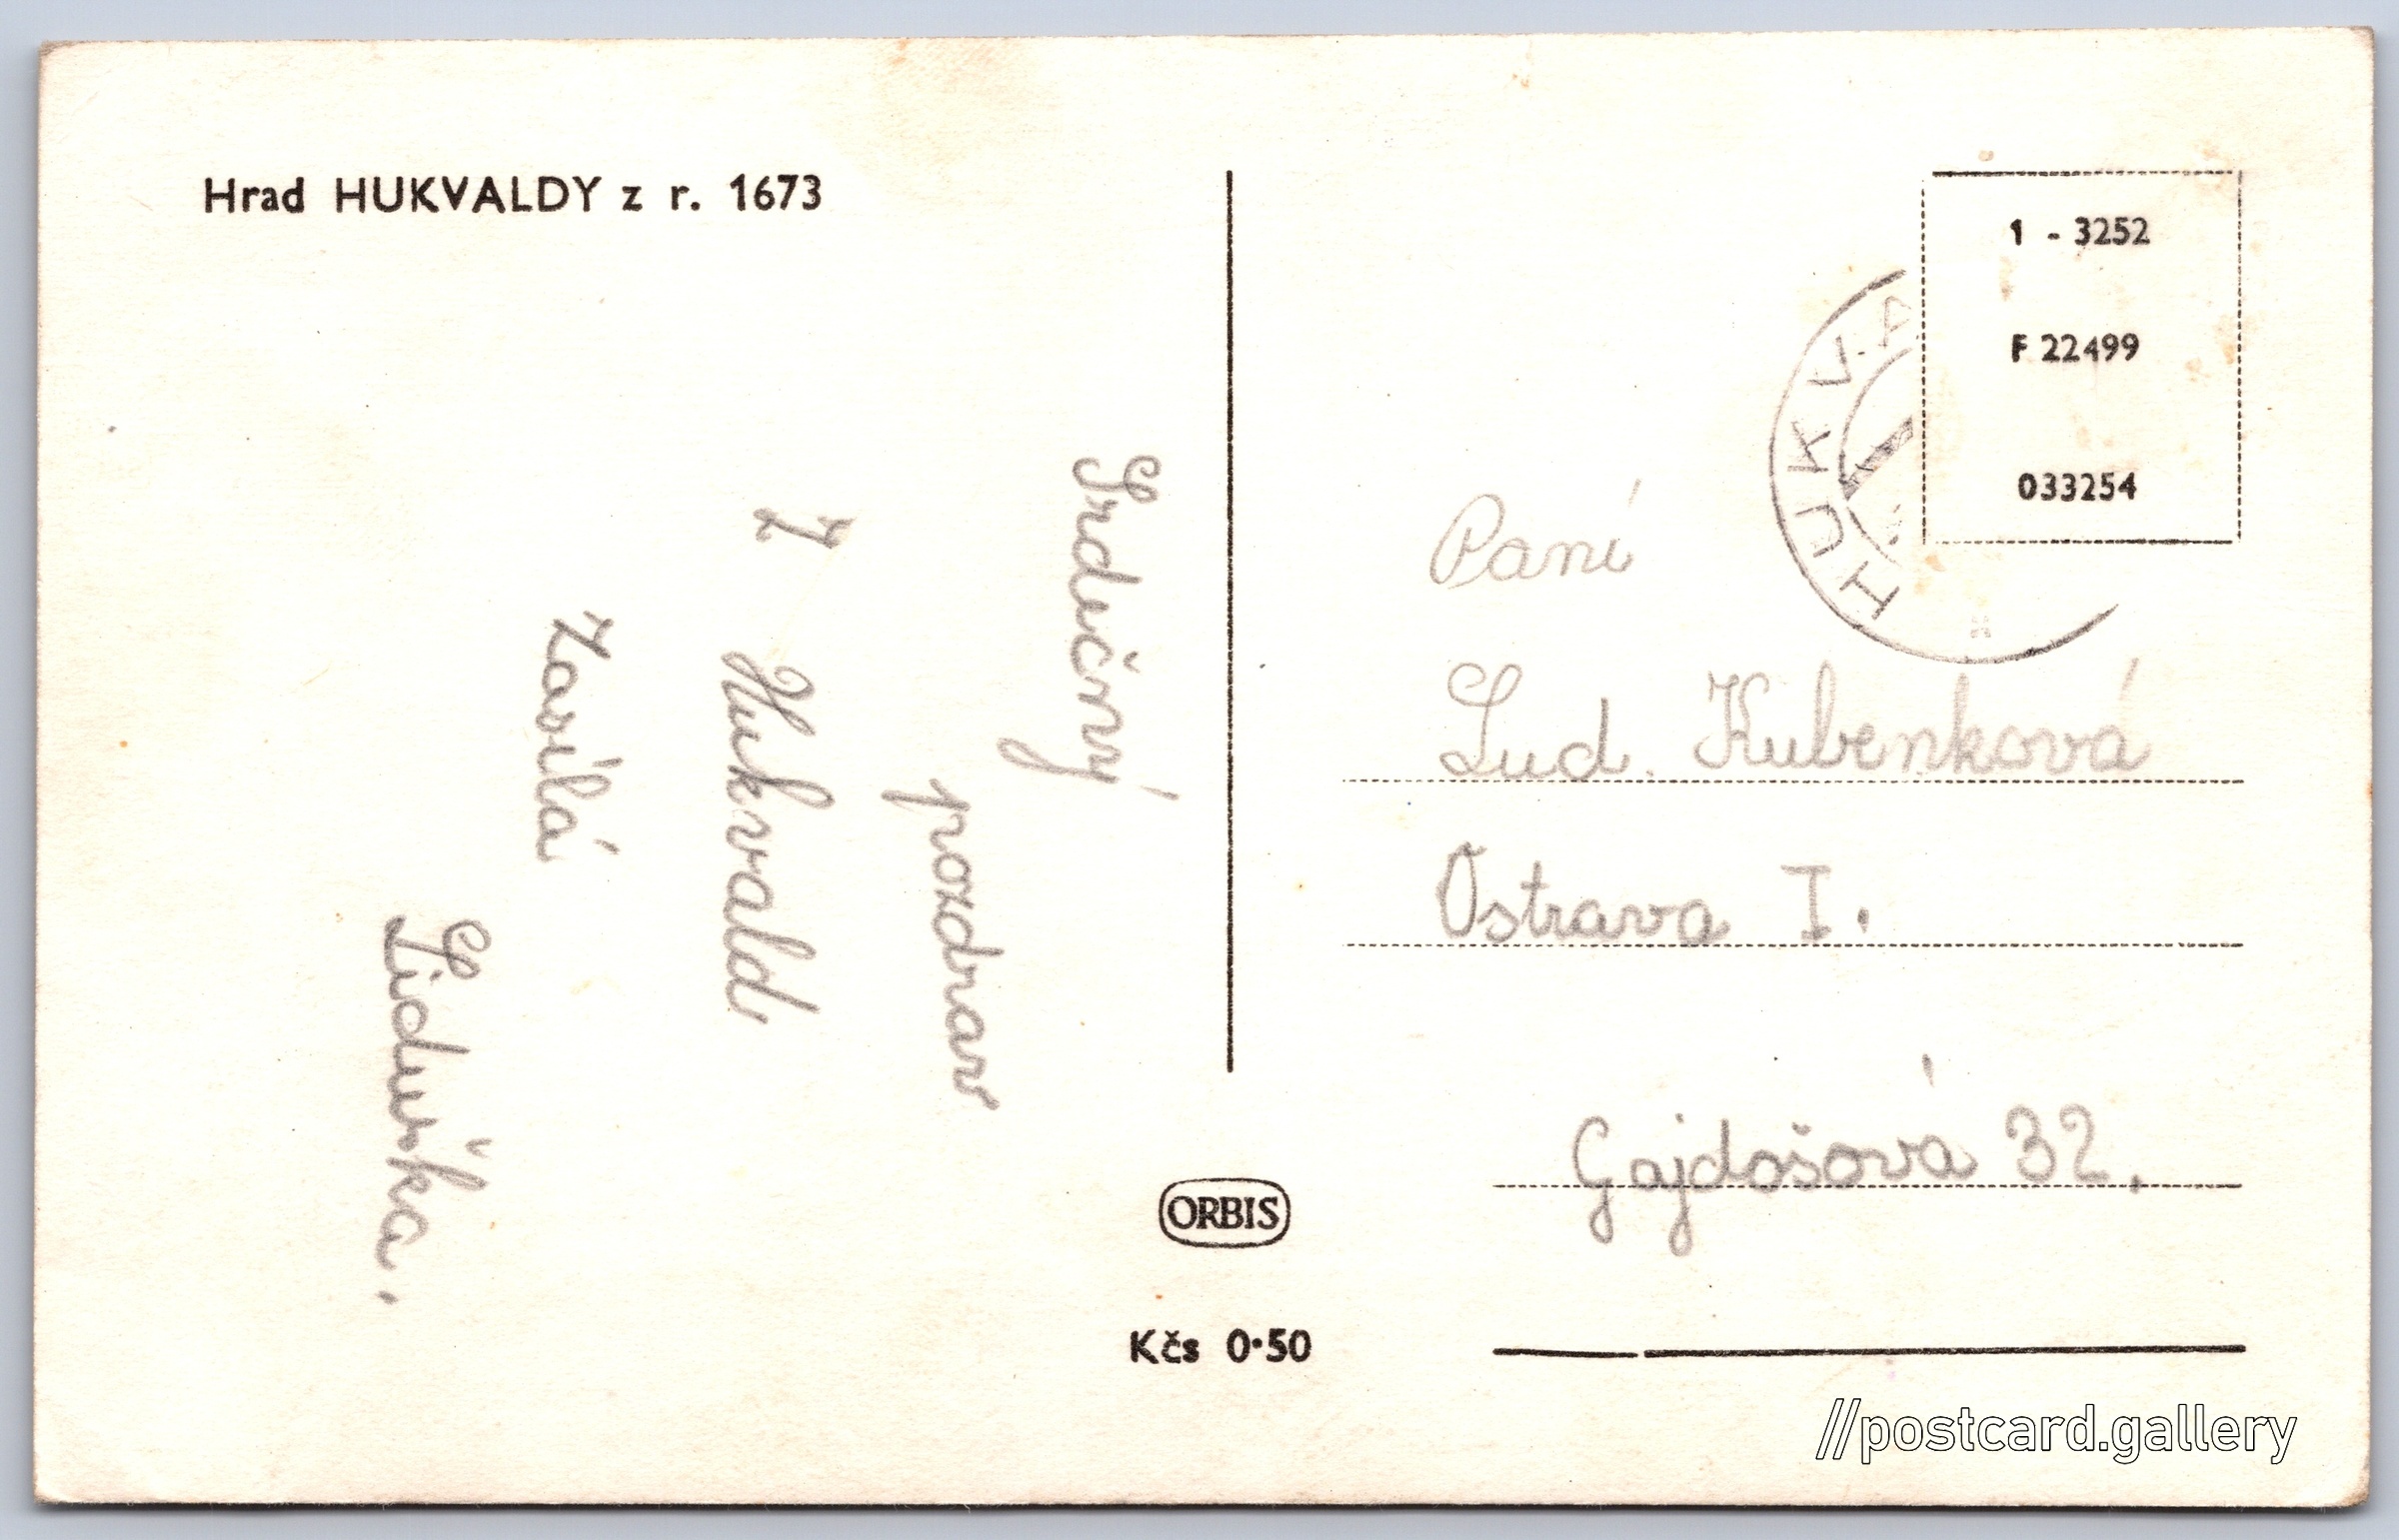 Hrad HUKVALDY z r. 1673
Srdečný
pozdrav
Z Hukvald
Zasílá
Liduška.
ORBIS
Kčs 0·50
1 - 3252
F 22499
033254
HUKVA
Paní
Lud. Kubenková
Ostrava I.
Gajdošová 32.
//postcard.gallery